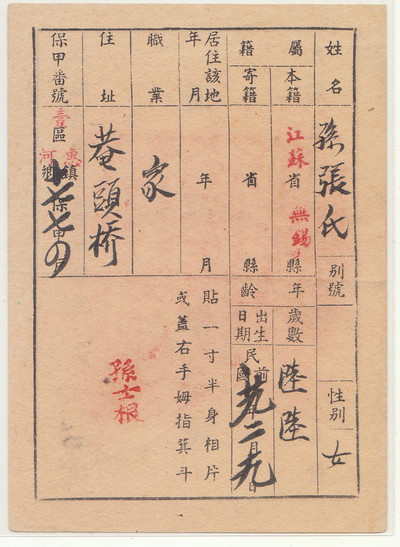 姓名 孫張氏 別號 性別 女
屬籍 本籍 江蘇省 無錫縣 年齡 歲數 陸陸
寄籍 省 縣 出生日期 民國前 月 日
居住該地年月 年 月
職業 家
住址 菴頭橋
保甲番號 壹區 惠河鄉鎮 保 甲
貼一寸半身相片
或蓋右手姆指箕斗
孫士根